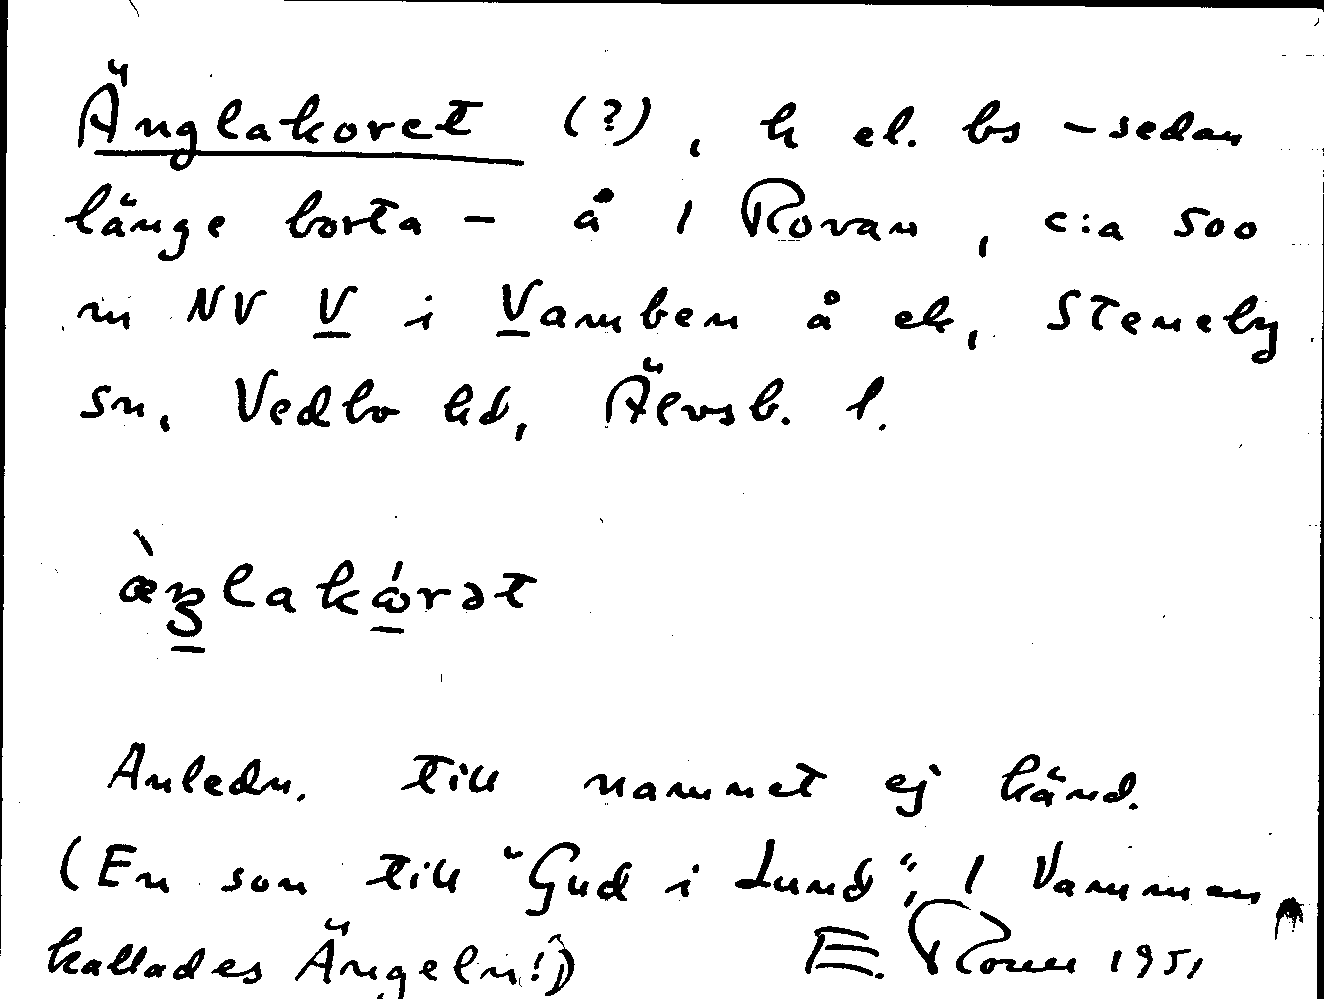 Änglakoret (?), h el. bs - sedan
länge borta - å 1 Rovan, c:a 500
m NV V i Vamben å ek, Steneby
sn, Vedbo hd, Älvsb. l.
æ̀ŋlakårət
Anledn. till namnet ej känd.
(En son till "Gud i Lund", 1 Vamman
kallades Ängeln!) E. 1951